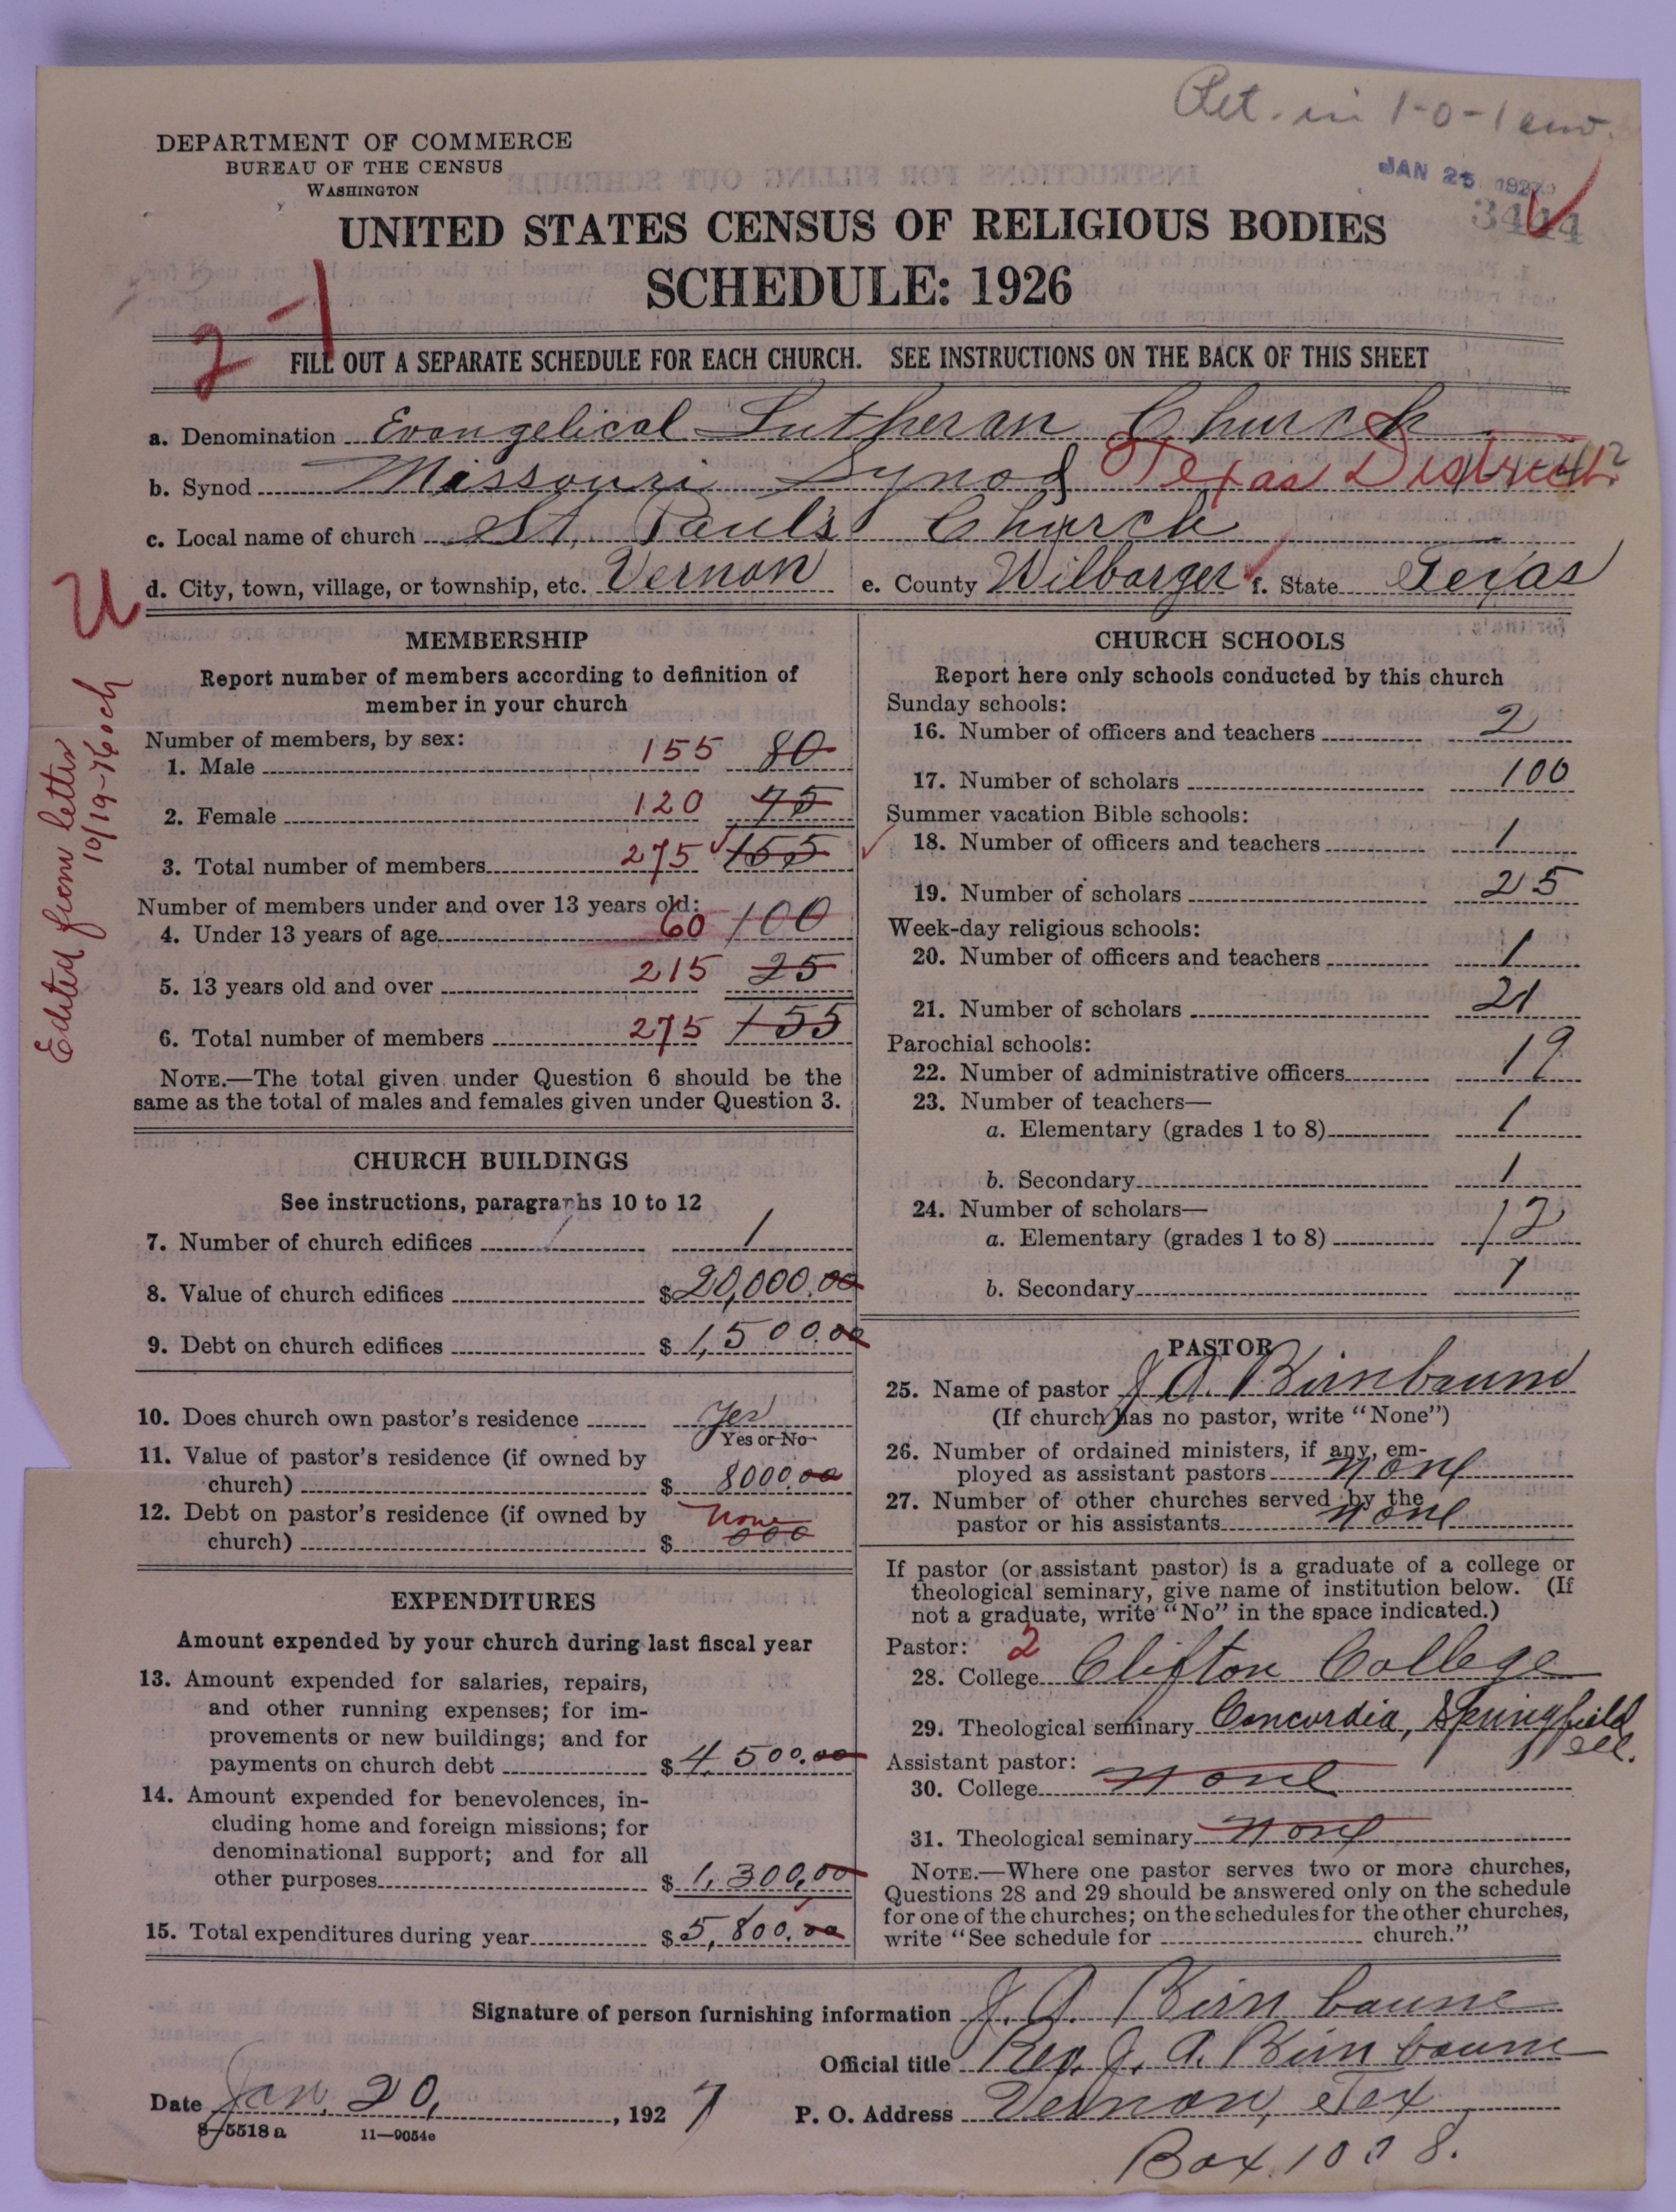 Ret. in 1-0-1 env.
JAN 25 1927
3444
DEPARTMENT OF COMMERCE
BUREAU OF THE CENSUS
WASHINGTON
UNITED STATES CENSUS OF RELIGIOUS BODIES
SCHEDULE: 1926
2-1
FILL OUT A SEPARATE SCHEDULE FOR EACH CHURCH. SEE INSTRUCTIONS ON THE BACK OF THIS SHEET
a. Denomination Evangelical Lutheran Church
b. Synod Missouri Synod Texas District
c. Local name of church St. Paul's Church
d. City, town, village, or township, etc. Vernon e. County Wilbarger f. State Texas
U
Edited from letter
10/19-76 och
MEMBERSHIP
Report number of members according to definition of
member in your church
Number of members, by sex:
1. Male 155 80
2. Female 120 75
3. Total number of members 275 155
Number of members under and over 13 years old:
4. Under 13 years of age 60 100
5. 13 years old and over 215 25
6. Total number of members 275 155
NOTE.—The total given under Question 6 should be the
same as the total of males and females given under Question 3.
CHURCH BUILDINGS
See instructions, paragraphs 10 to 12
7. Number of church edifices 1
8. Value of church edifices $20,000.00
9. Debt on church edifices $1,500.00
10. Does church own pastor's residence Yes
Yes or No
11. Value of pastor's residence (if owned by
church) $8000.00
12. Debt on pastor's residence (if owned by None
church) $000
EXPENDITURES
Amount expended by your church during last fiscal year
13. Amount expended for salaries, repairs,
and other running expenses; for im-
provements or new buildings; and for
payments on church debt $4,500.00
14. Amount expended for benevolences, in-
cluding home and foreign missions; for
denominational support; and for all
other purposes $1,300.00
15. Total expenditures during year $5,800.00
CHURCH SCHOOLS
Report here only schools conducted by this church
Sunday schools:
16. Number of officers and teachers 2
17. Number of scholars 100
Summer vacation Bible schools:
18. Number of officers and teachers 1
19. Number of scholars 25
Week-day religious schools:
20. Number of officers and teachers 1
21. Number of scholars 21
Parochial schools:
22. Number of administrative officers 19
23. Number of teachers—
a. Elementary (grades 1 to 8) 1
b. Secondary 1
24. Number of scholars—
a. Elementary (grades 1 to 8) 12
b. Secondary 1
PASTOR
25. Name of pastor J. A. Birnbaum
(If church has no pastor, write "None")
26. Number of ordained ministers, if any, em-
ployed as assistant pastors none
27. Number of other churches served by the
pastor or his assistants none
If pastor (or assistant pastor) is a graduate of a college or
theological seminary, give name of institution below. (If
not a graduate, write "No" in the space indicated.)
Pastor: 2
28. College Clifton College
29. Theological seminary Concordia, Springfield
Ill.
Assistant pastor:
30. College none
31. Theological seminary none
NOTE.—Where one pastor serves two or more churches,
Questions 28 and 29 should be answered only on the schedule
for one of the churches; on the schedules for the other churches,
write "See schedule for church."
Signature of person furnishing information J. A. Birnbaum
Official title Rev. J. A. Birnbaum
Date Jan. 20, 1927 P. O. Address Vernon, Tex
8-5518a 11-9054e
Box 1008.